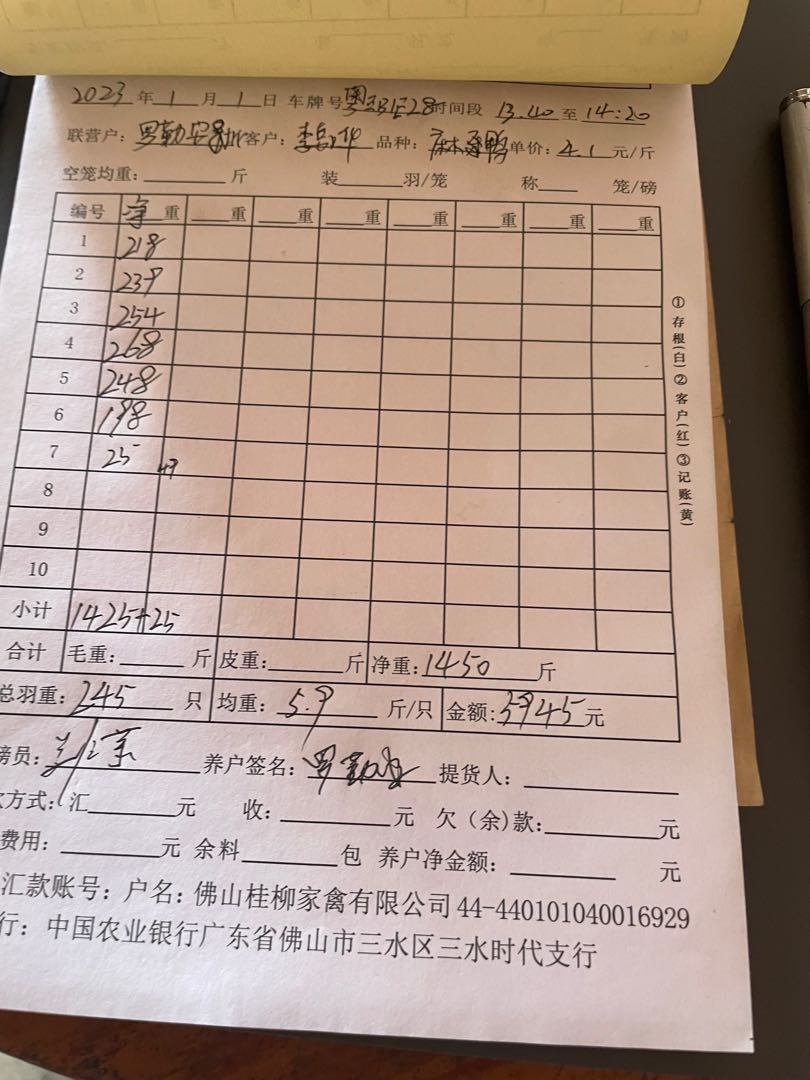 2023 年 1 月 1 日 车牌号 时间段 13.40 至 14:20
联营户： 客户： 品种： 单价： 4.1 元/斤
空笼均重： 斤 装 羽/笼 称 笼/磅
编号 净重 重 重 重 重 重 重 重
1 218
2 239
3 254
4 268
5 248
6 198
7 25
8
9
10
小计 1425+25
合计 毛重： 斤 皮重： 斤 净重：1450 斤
总羽重：245 只 均重：5.9 斤/只 金额：5945元
磅员： 养户签名： 提货人：
款方式：汇 元 收： 元 欠（余）款： 元
费用： 元 余料 包 养户净金额： 元
汇款账号：户名：佛山桂柳家禽有限公司 44-440101040016929
行：中国农业银行广东省佛山市三水区三水时代支行
①存根(白)②客户(红)③记账(黄)